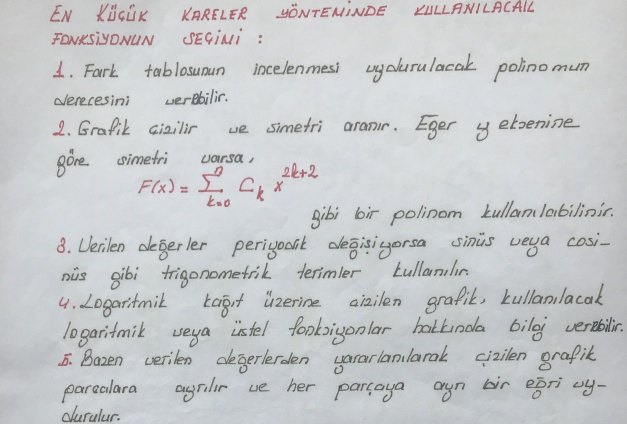 EN KÜÇÜK KARELER YÖNTEMİNDE KULLANILACAK
FONKSİYONUN SEÇİMİ :
1. Fark tablosunun incelenmesi uydurulacak polinomun
derecesini verebilir.
2. Grafik çizilir ve simetri aranır. Eğer y eksenine
göre simetri varsa,
F(x) = \sum_{k=0}^{n} C_k x^{2k+2}
gibi bir polinom kullanılabilinir.
3. Verilen değerler periyodik değişiyorsa sinüs veya cosi-
nüs gibi trigonometrik terimler kullanılır.
4. Logaritmik kağıt üzerine çizilen grafik, kullanılacak
logaritmik veya üstel fonksiyonlar hakkında bilgi verebilir.
5. Bazen verilen değerlerden yararlanılarak çizilen grafik
parçalara ayrılır ve her parçaya ayrı bir eğri uy-
durulur.